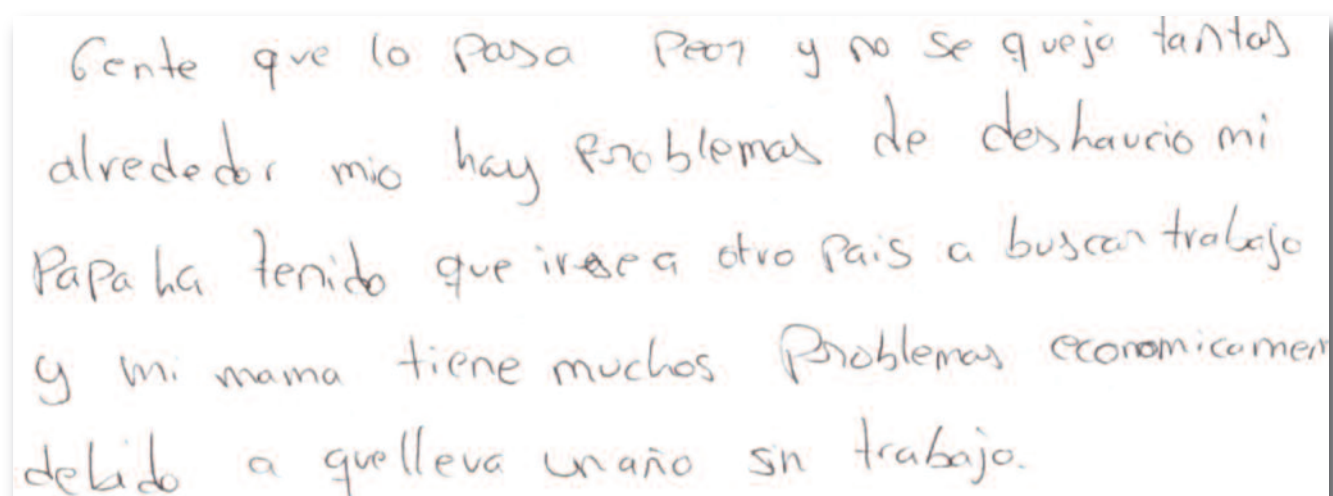 Gente que lo pasa peor y no se queja tantas
alrededor mio hay problemas de deshaucio mi
Papa ha tenido que irse a otro pais a buscar trabajo
y mi mama tiene muchos problemas economicamen
debido a que lleva un año sin trabajo.